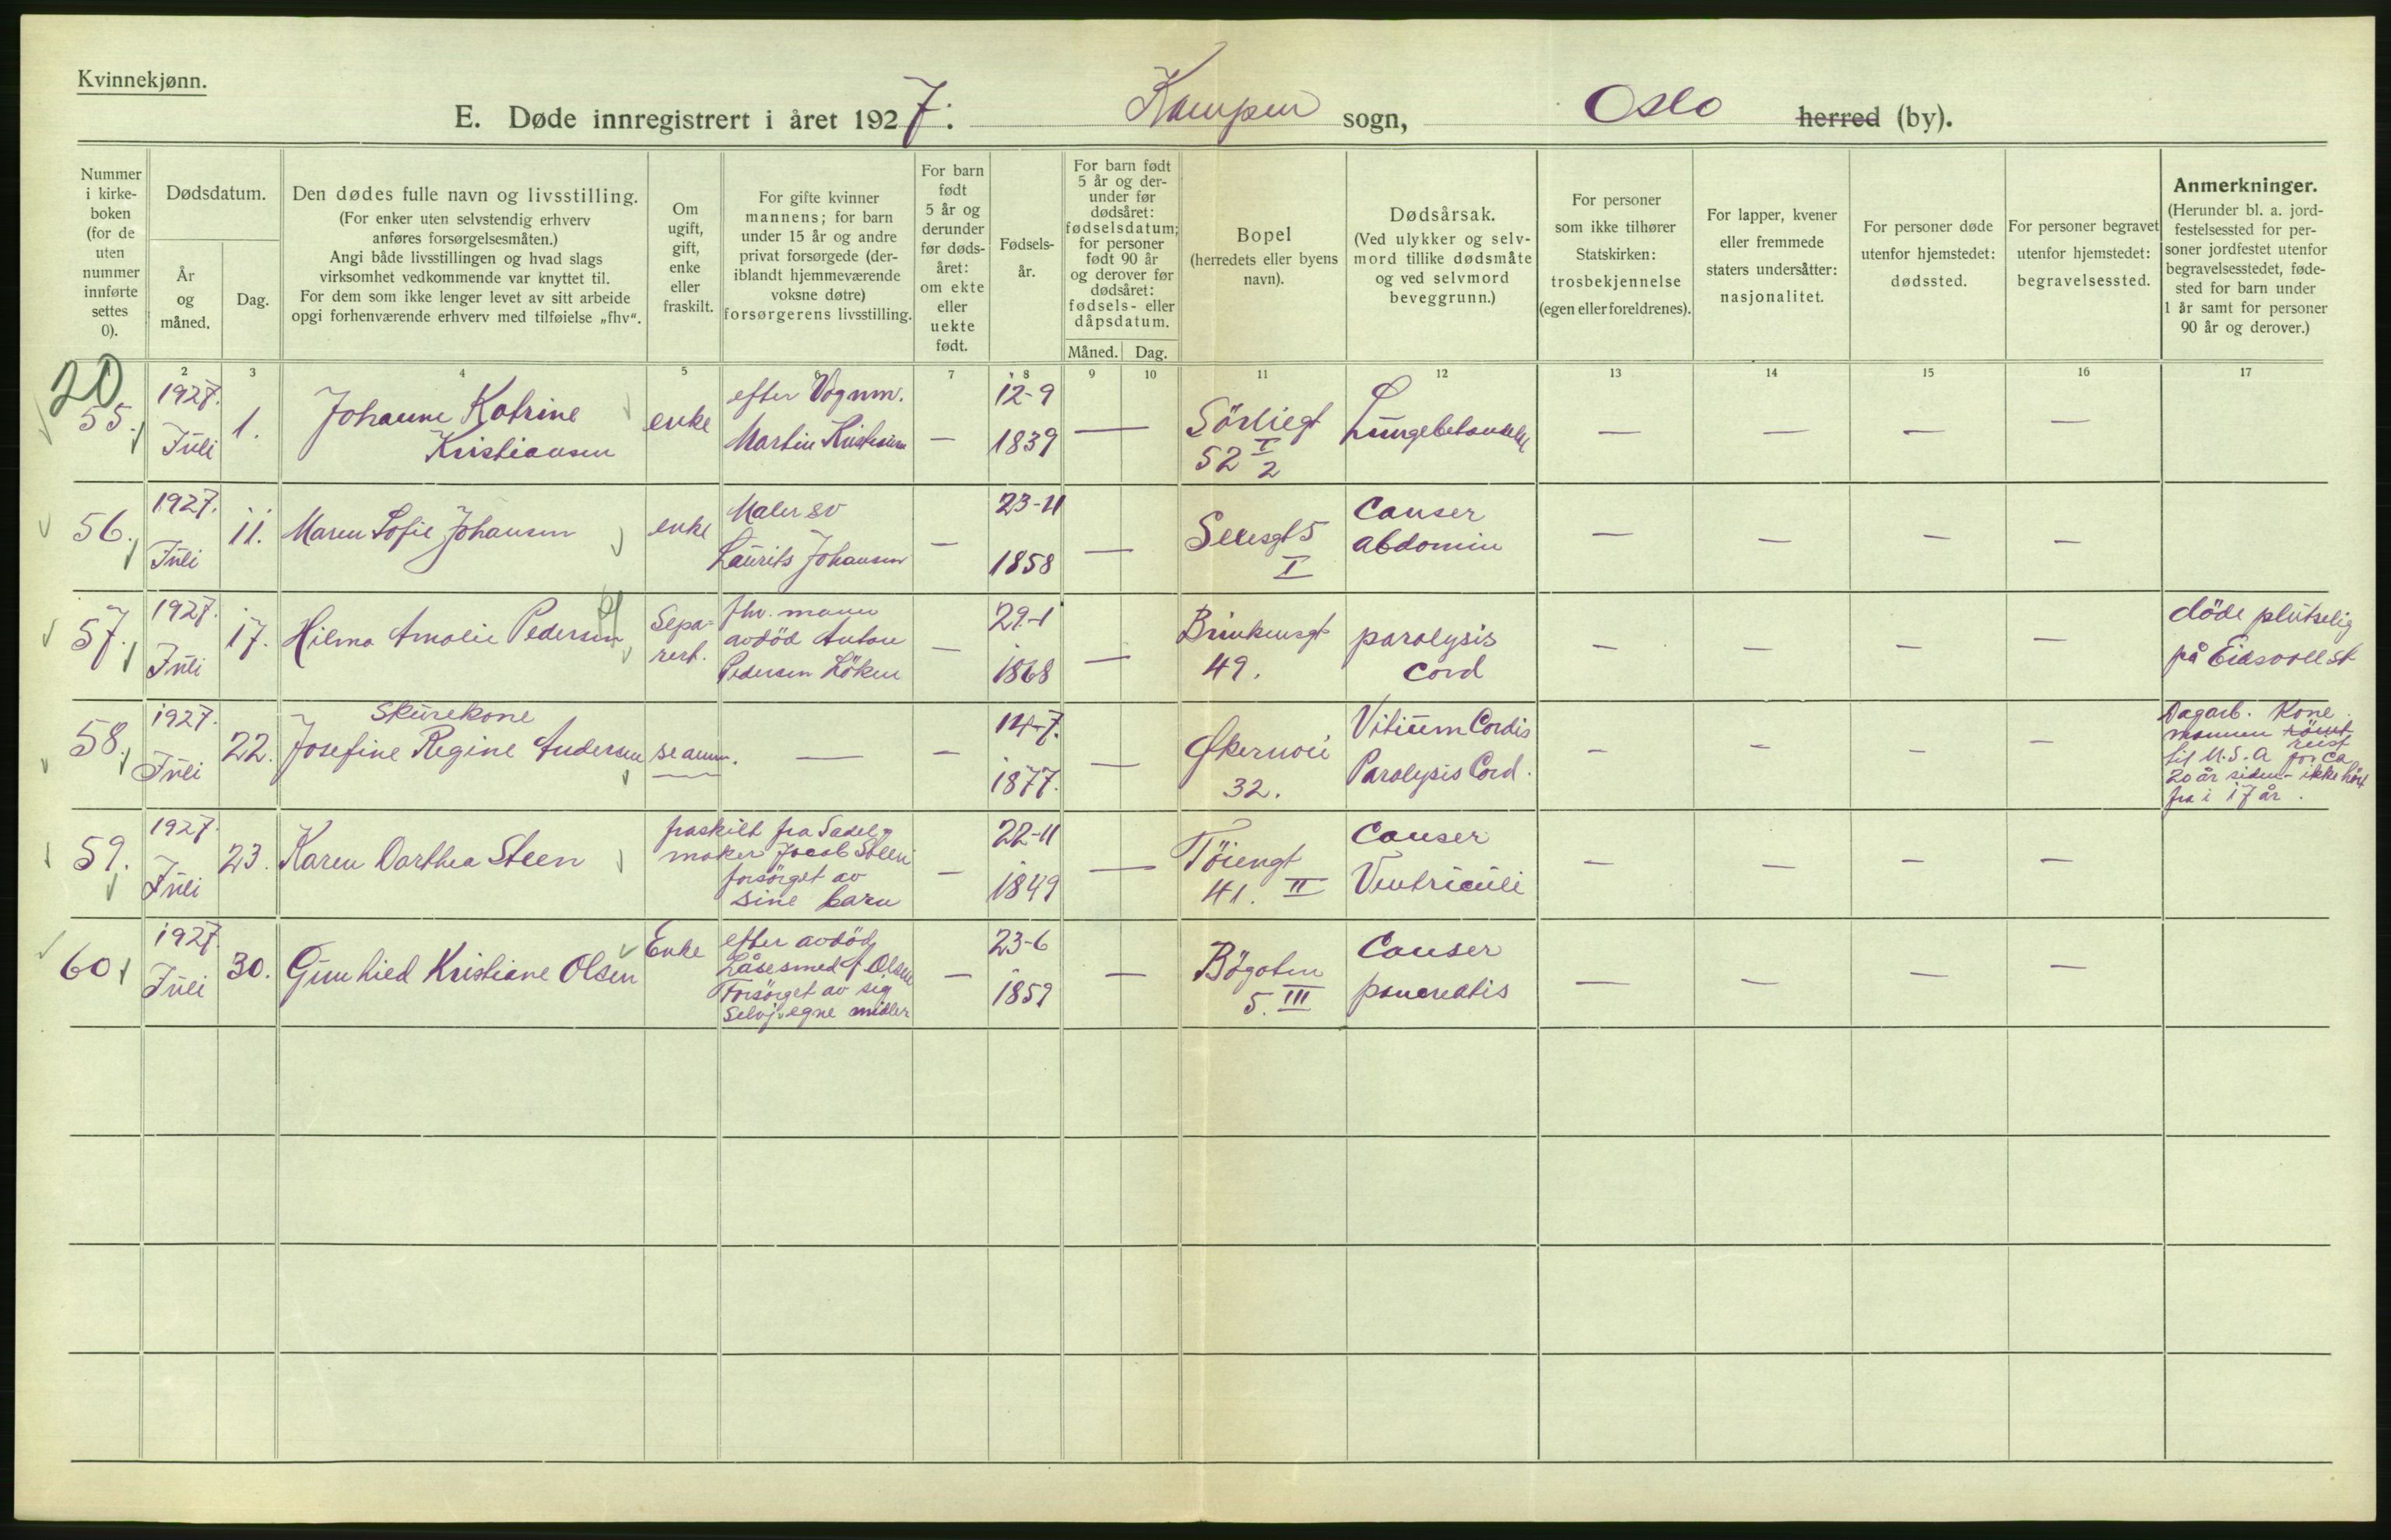 Kvinnekjønn.
E. Døde innregistrert i året 1927. Kampen sogn, Oslo herred (by).
Nummer i kirke-
boken
(for de
uten
nummer
innførte
settes
0).
Dødsdatum.
År
og
måned.
Dag.
Den dødes fulle navn og livsstilling.
(For enker uten selvstendig erhverv
anføres forsørgelsesmåten.)
Angi både livsstillingen og hvad slags
virksomhet vedkommende var knyttet til.
For dem som ikke lenger levet av sitt arbeide
opgi forhenværende erhverv med tilføielse „fhv“.
Om
ugift,
gift,
enke
eller
fraskilt.
For gifte kvinner
mannens; for barn
under 15 år og andre
privat forsørgede (der-
iblandt hjemmeværende
voksne døtre)
forsørgerens livsstilling.
For barn
født
5 år og
derunder
før døds-
året:
om ekte
eller
uekte
født.
Fødsels-
år.
For barn født
5 år og der-
under før
dødsåret:
fødselsdatum;
for personer
født 90 år
og derover før
dødsåret:
fødsels- eller
dåpsdatum.
Måned. Dag.
Bopel
(herredets eller byens
navn).
Dødsårsak.
(Ved ulykker og selv-
mord tillike dødsmåte
og ved selvmord
beveggrunn.)
For personer
som ikke tilhører
Statskirken:
trosbekjennelse
(egen eller foreldrenes).
For lapper, kvener
eller fremmede
staters undersåtter:
nasjonalitet.
For personer døde
utenfor hjemstedet:
dødssted.
For personer begravet
utenfor hjemstedet:
begravelsessted.
Anmerkninger.
(Herunder bl. a. jord-
festelsessted for per-
soner jordfestet utenfor
begravelsesstedet, føde-
sted for barn under
1 år samt for personer
90 år og derover.)
2 3 4 5 7 8 9 10 11 12 13 14 15 16 17
20
55.
1927.
Juli
1.
Johanne Katrine
Kristiansen
enke
efter Vognm.
Martin Kristiansen
—
12-9
1839
—
Sörliegt
52 I/2
Lungebetændelse
— — — —
56.
1927.
Juli
11.
Maren Sofie Johansen
enke
Maler sv
Laurits Johansen
—
23-11
1858
—
abdomin
I
— — — —
57.
1927.
Juli
17.
Hilma Amalie Pedersen
Sepa-
rert.
fhv. mann
avdöd Anton
Pedersen Löken
—
29-1
1868
—
Brinkensgt
49.
paralysis
Cord
— — — —
döde plutselig
på Eidsvoll st
58.
1927.
Juli
22.
Skurekone
Josefine Regine Andersen
se anm.
—
—
14-7.
1877.
—
Økernvei
32.
Vitium Cordis
Paralysis Cord.
— — — —
Dagarb. Kone.
mannen römt
reist
til U.S.A for ca
20 år siden - ikke hört
fra i 17 år.
59.
1927.
Juli
23.
Karen Dorthea Steen
fraskilt fra Sadel-
maker Jacob Steen
forsörget av
sine barn
—
22-11
1849
—
Töiengt
41. II
Canser
Ventriculi
— — — —
60
1927
Juli
30.
Gunhild Kristiane Olsen
Enke
efter avdöd
Låsesmed A Olsen
Forsörget av sig
selv, egne midler
—
23-6
1859
—
Bögaten
5. III
Canser
pancreatis
— — — —